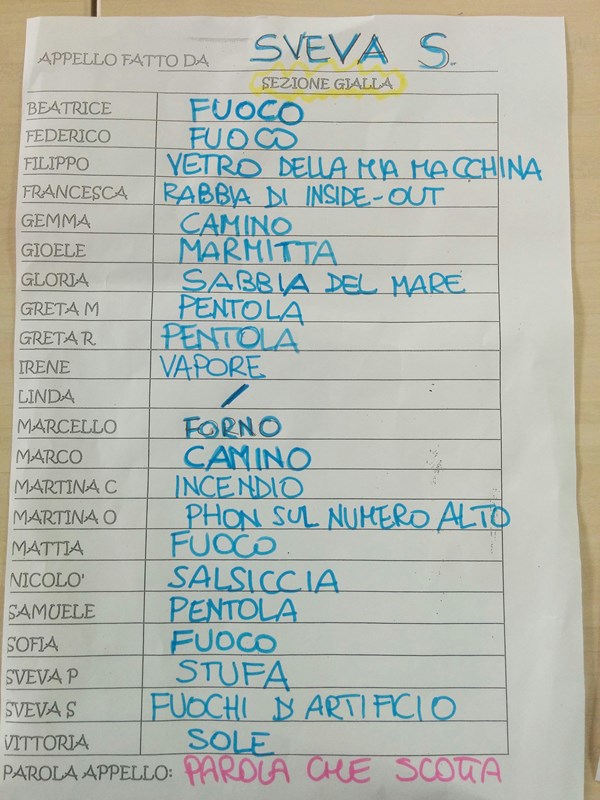 APPELLO FATTO DA SVEVA S.
SEZIONE GIALLA
BEATRICE FUOCO
FEDERICO FUOCO
FILIPPO VETRO DELLA MIA MACCHINA
FRANCESCA RABBIA DI INSIDE-OUT
GEMMA CAMINO
GIOELE MARMITTA
GLORIA SABBIA DEL MARE
GRETA M PENTOLA
GRETA R PENTOLA
IRENE VAPORE
LINDA /
MARCELLO FORNO
MARCO CAMINO
MARTINA C INCENDIO
MARTINA O PHON SUL NUMERO ALTO
MATTIA FUOCO
NICOLO' SALSICCIA
SAMUELE PENTOLA
SOFIA FUOCO
SVEVA P STUFA
SVEVA S FUOCHI D'ARTIFICIO
VITTORIA SOLE
PAROLA APPELLO: PAROLA CHE SCOTTA